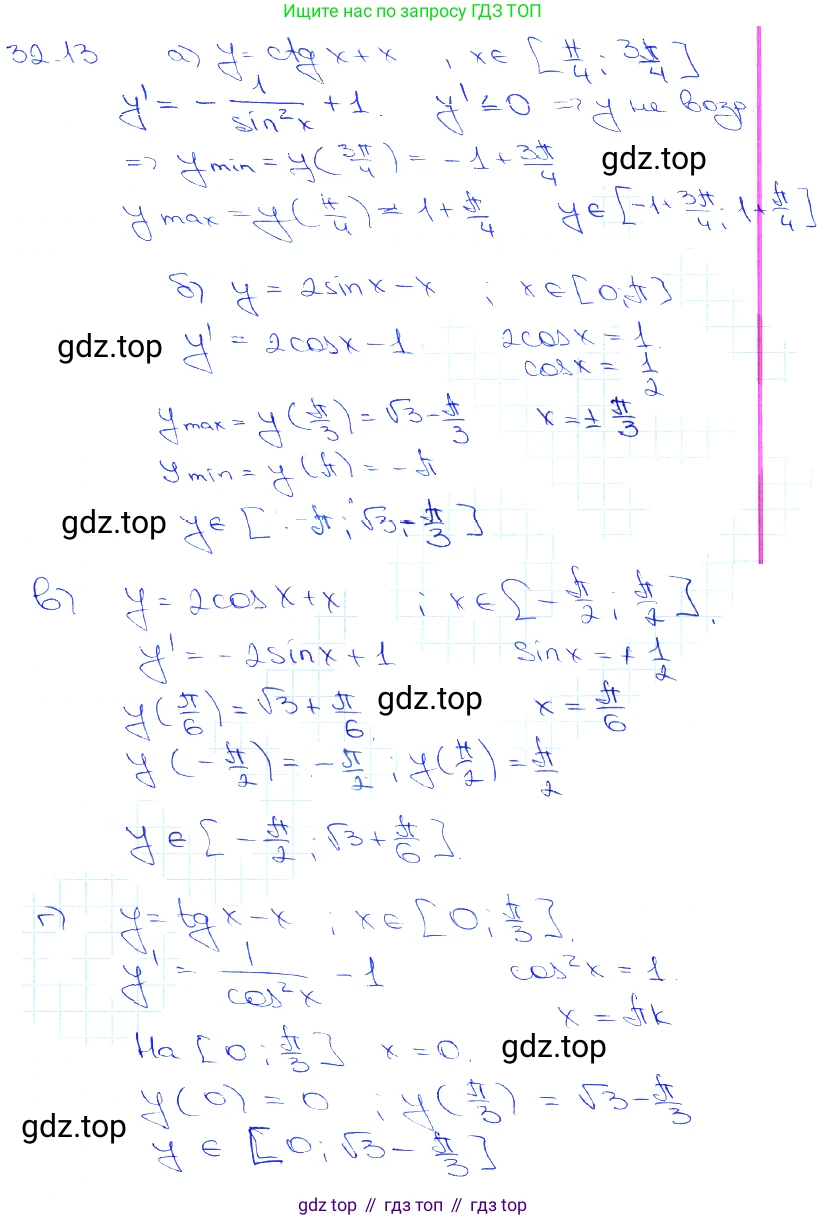 Ищите нас по запросу ГДЗ ТОП
32.13 а) y = ctg x + x , x ∈ [π/4 ; 3π/4]
y' = - 1/sin²x + 1. y' ≤ 0 => y не возр.
=> y min = y(3π/4) = -1 + 3π/4
gdz.top
y max = y(π/4) = 1 + π/4 y ∈ [-1 + 3π/4 ; 1 + π/4]
б) y = 2sinx - x ; x ∈ [0; π]
gdz.top
y' = 2cosx - 1 2cosx = 1.
cosx = 1/2
y max = y(π/3) = √3 - π/3 x = ± π/3
y min = y(π) = - π
gdz.top
y ∈ [-π ; √3 - π/3]
в) y = 2cosx + x ; x ∈ [-π/2 ; π/2].
y' = -2sinx + 1 sinx = + 1/2
y(π/6) = √3 + π/6. x = π/6
gdz.top
y(-π/2) = -π/2 ; y(π/2) = π/2
y ∈ [-π/2 ; √3 + π/6].
г) y = tgx - x ; x ∈ [0 ; π/3].
y' = 1/cos²x - 1 cos²x = 1.
x = πk
На [0 ; π/3] x = 0.
gdz.top
y(0) = 0 ; y(π/3) = √3 - π/3
gdz.top
y ∈ [0 ; √3 - π/3]
gdz top // гдз топ // gdz top